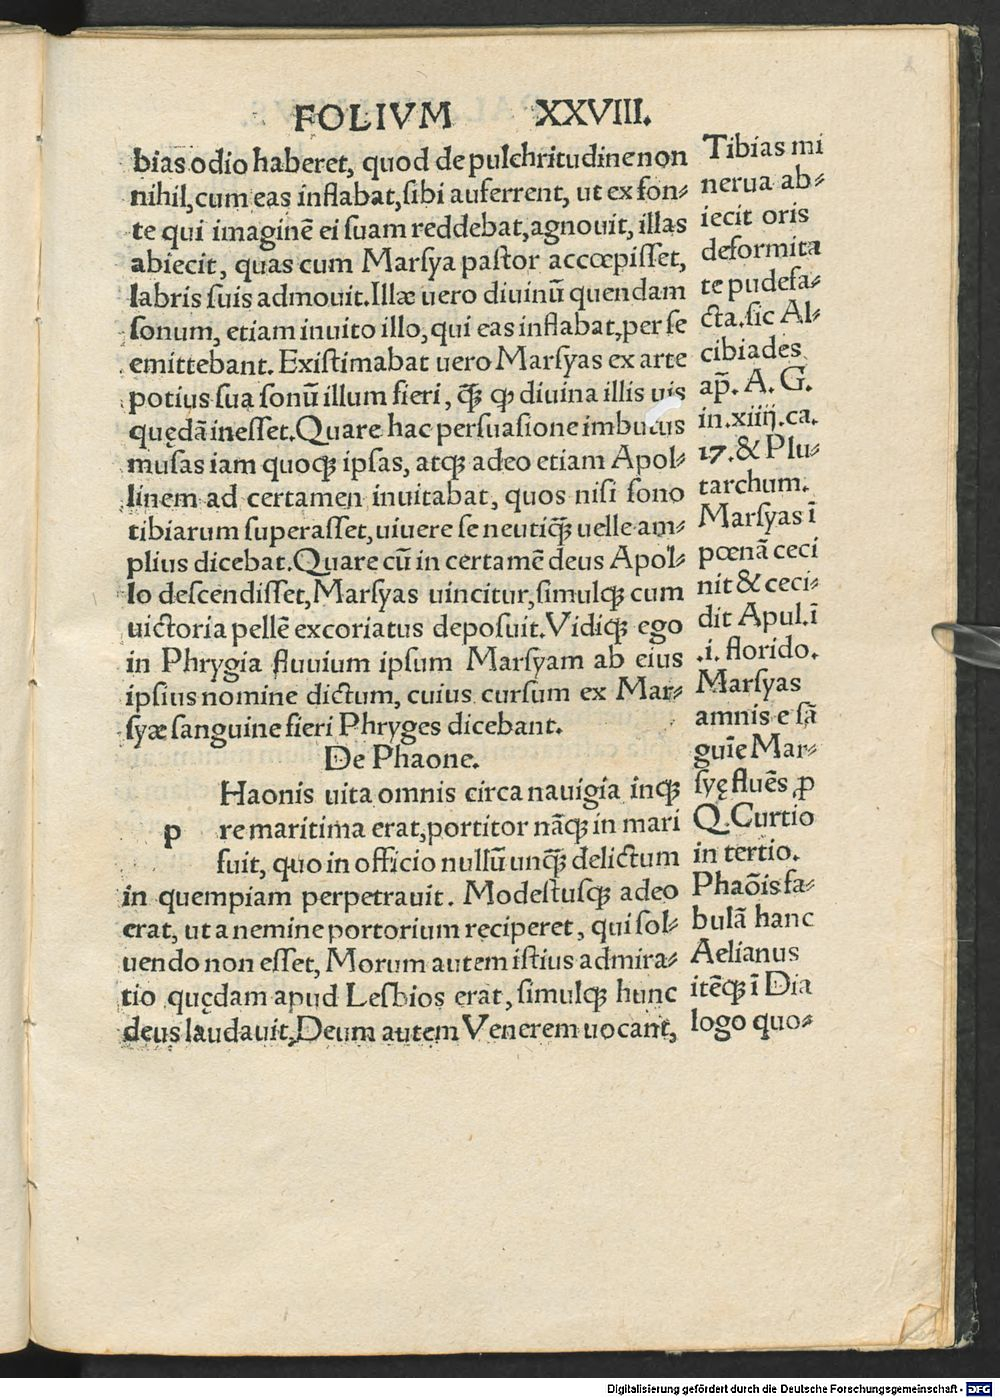 FOLIVM XXVIII.
bias odio haberet, quod de pulchritudine non
nihil, cum eas inflabat, sibi auferrent, ut ex fon⸗
te qui imaginē ei suam reddebat, agnouit, illas
abiecit, quas cum Marsya pastor accœpisset,
labris suis admouit. Illæ uero diuinū quendam
sonum, etiam inuito illo, qui eas inflabat, per se
emittebant. Existimabat uero Marsyas ex arte
potius sua sonū illum fieri, ꝙ̃ ꝙ diuina illis uis
quędā inesset. Quare hac persuasione imbutus
musas iam quoqꝫ ipsas, atqꝫ adeo etiam Apol⸗
linem ad certamen inuitabat, quos nisi sono
tibiarum superasset, uiuere se neutiqꝫ̃ uelle am⸗
plius dicebat. Quare cū in certamē deus Apol⸗
lo descendisset, Marsyas uincitur, simulqꝫ cum
uictoria pellē excoriatus deposuit. Vidiqꝫ ego
in Phrygia fluuium ipsum Marsyam ab eius
ipsius nomine dictum, cuius cursum ex Mar⸗
syæ sanguine fieri Phryges dicebant.
De Phaone.
p Haonis uita omnis circa nauigia inqꝫ
re maritima erat, portitor nāqꝫ in mari
fuit, quo in officio nullū unqꝫ̃ delictum
in quempiam perpetrauit. Modestusqꝫ adeo
erat, ut a nemine portorium reciperet, qui sol⸗
uendo non esset, Morum autem istius admira⸗
tio quędam apud Lesbios erat, simulqꝫ hunc
deus laudauit, Deum autem Venerem uocant,
Tibias mi
nerua ab⸗
iecit oris
deformita
te pudefa⸗
cta. sic Al⸗
cibiades
ap̄. A. G.
in .xiiij. ca.
17. & Plu⸗
tarchum.
Marsyas ī
pœnā ceci
nit & ceci⸗
dit Apul. ī
.i. florido.
Marsyas
amnis e sā
guīe Mar⸗
syę fluēs ꝓ
Q. Curtio
in tertio.
Phaōis fa⸗
bulā hanc
Aelianus
itēqꝫ ī Dia
logo quo⸗
Digitalisierung gefördert durch die Deutsche Forschungsgemeinschaft - DFG